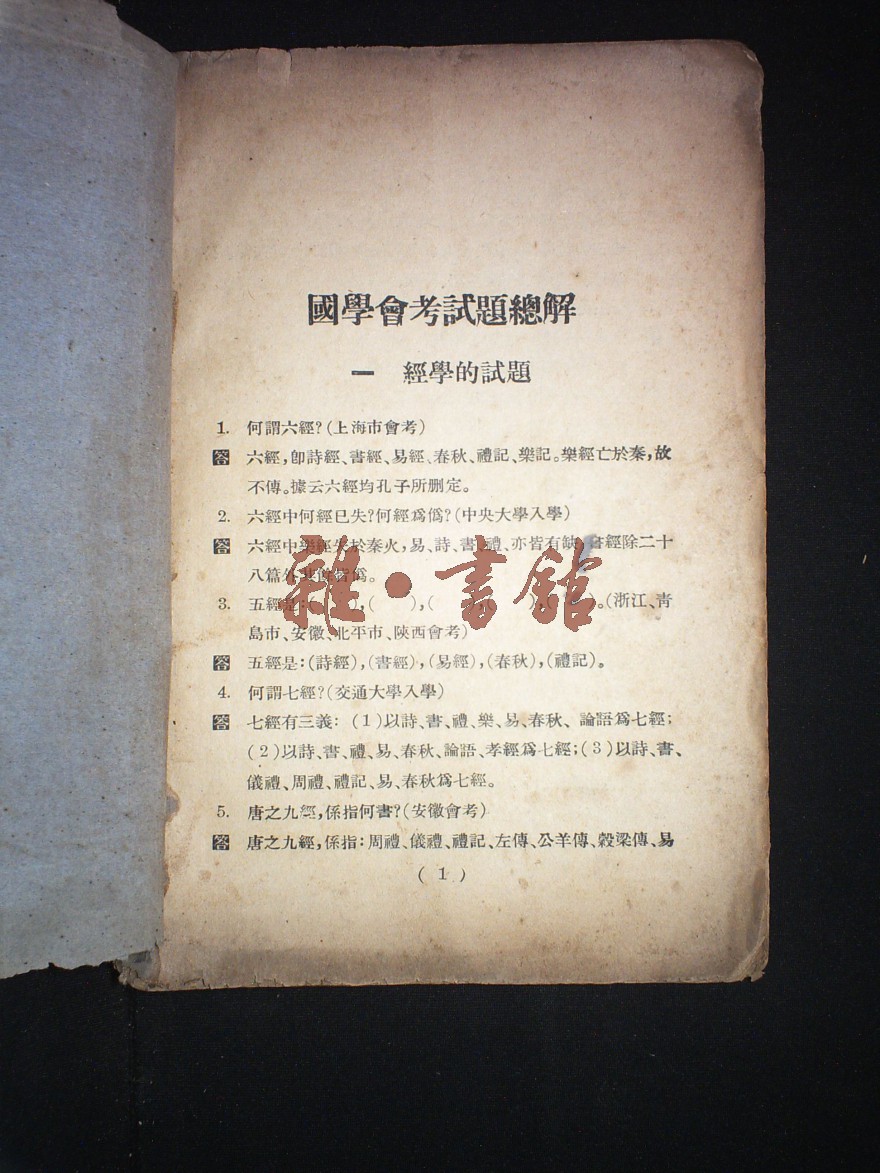 國學會考試題總解
一 經學的試題
1. 何謂六經?(上海市會考)
答 六經,卽詩經、書經、易經、春秋、禮記、樂記。樂經亡於秦,故
不傳。據云六經均孔子所删定。
2. 六經中何經已失?何經爲僞?(中央大學入學)
答 六經中樂經失於秦火,易、詩、書、禮、亦皆有缺,書經除二十
八篇外其餘皆僞。
3. 五經是:( ),( ),( ),( ),( )。(浙江、靑
島市、安徽、北平市、陝西會考)
答 五經是:(詩經),(書經),(易經),(春秋),(禮記)。
4. 何謂七經?(交通大學入學)
答 七經有三義:(1)以詩、書、禮、樂、易、春秋、論語爲七經;
(2)以詩、書、禮、易、春秋、論語、孝經爲七經;(3)以詩、書、
儀禮、周禮、禮記、易、春秋爲七經。
5. 唐之九經,係指何書?(安徽會考)
答 唐之九經,係指:周禮、儀禮、禮記、左傳、公羊傳、穀梁傳、易
(1)
雜·書館